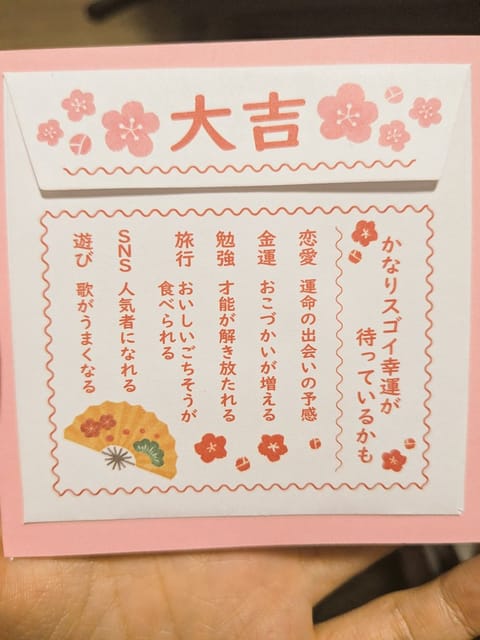 大吉
かなりスゴイ幸運が
待っているかも
恋愛 運命の出会いの予感
金運 おこづかいが増える
勉強 才能が解き放たれる
旅行 おいしいごちそうが
食べられる
SNS 人気者になれる
遊び 歌がうまくなる